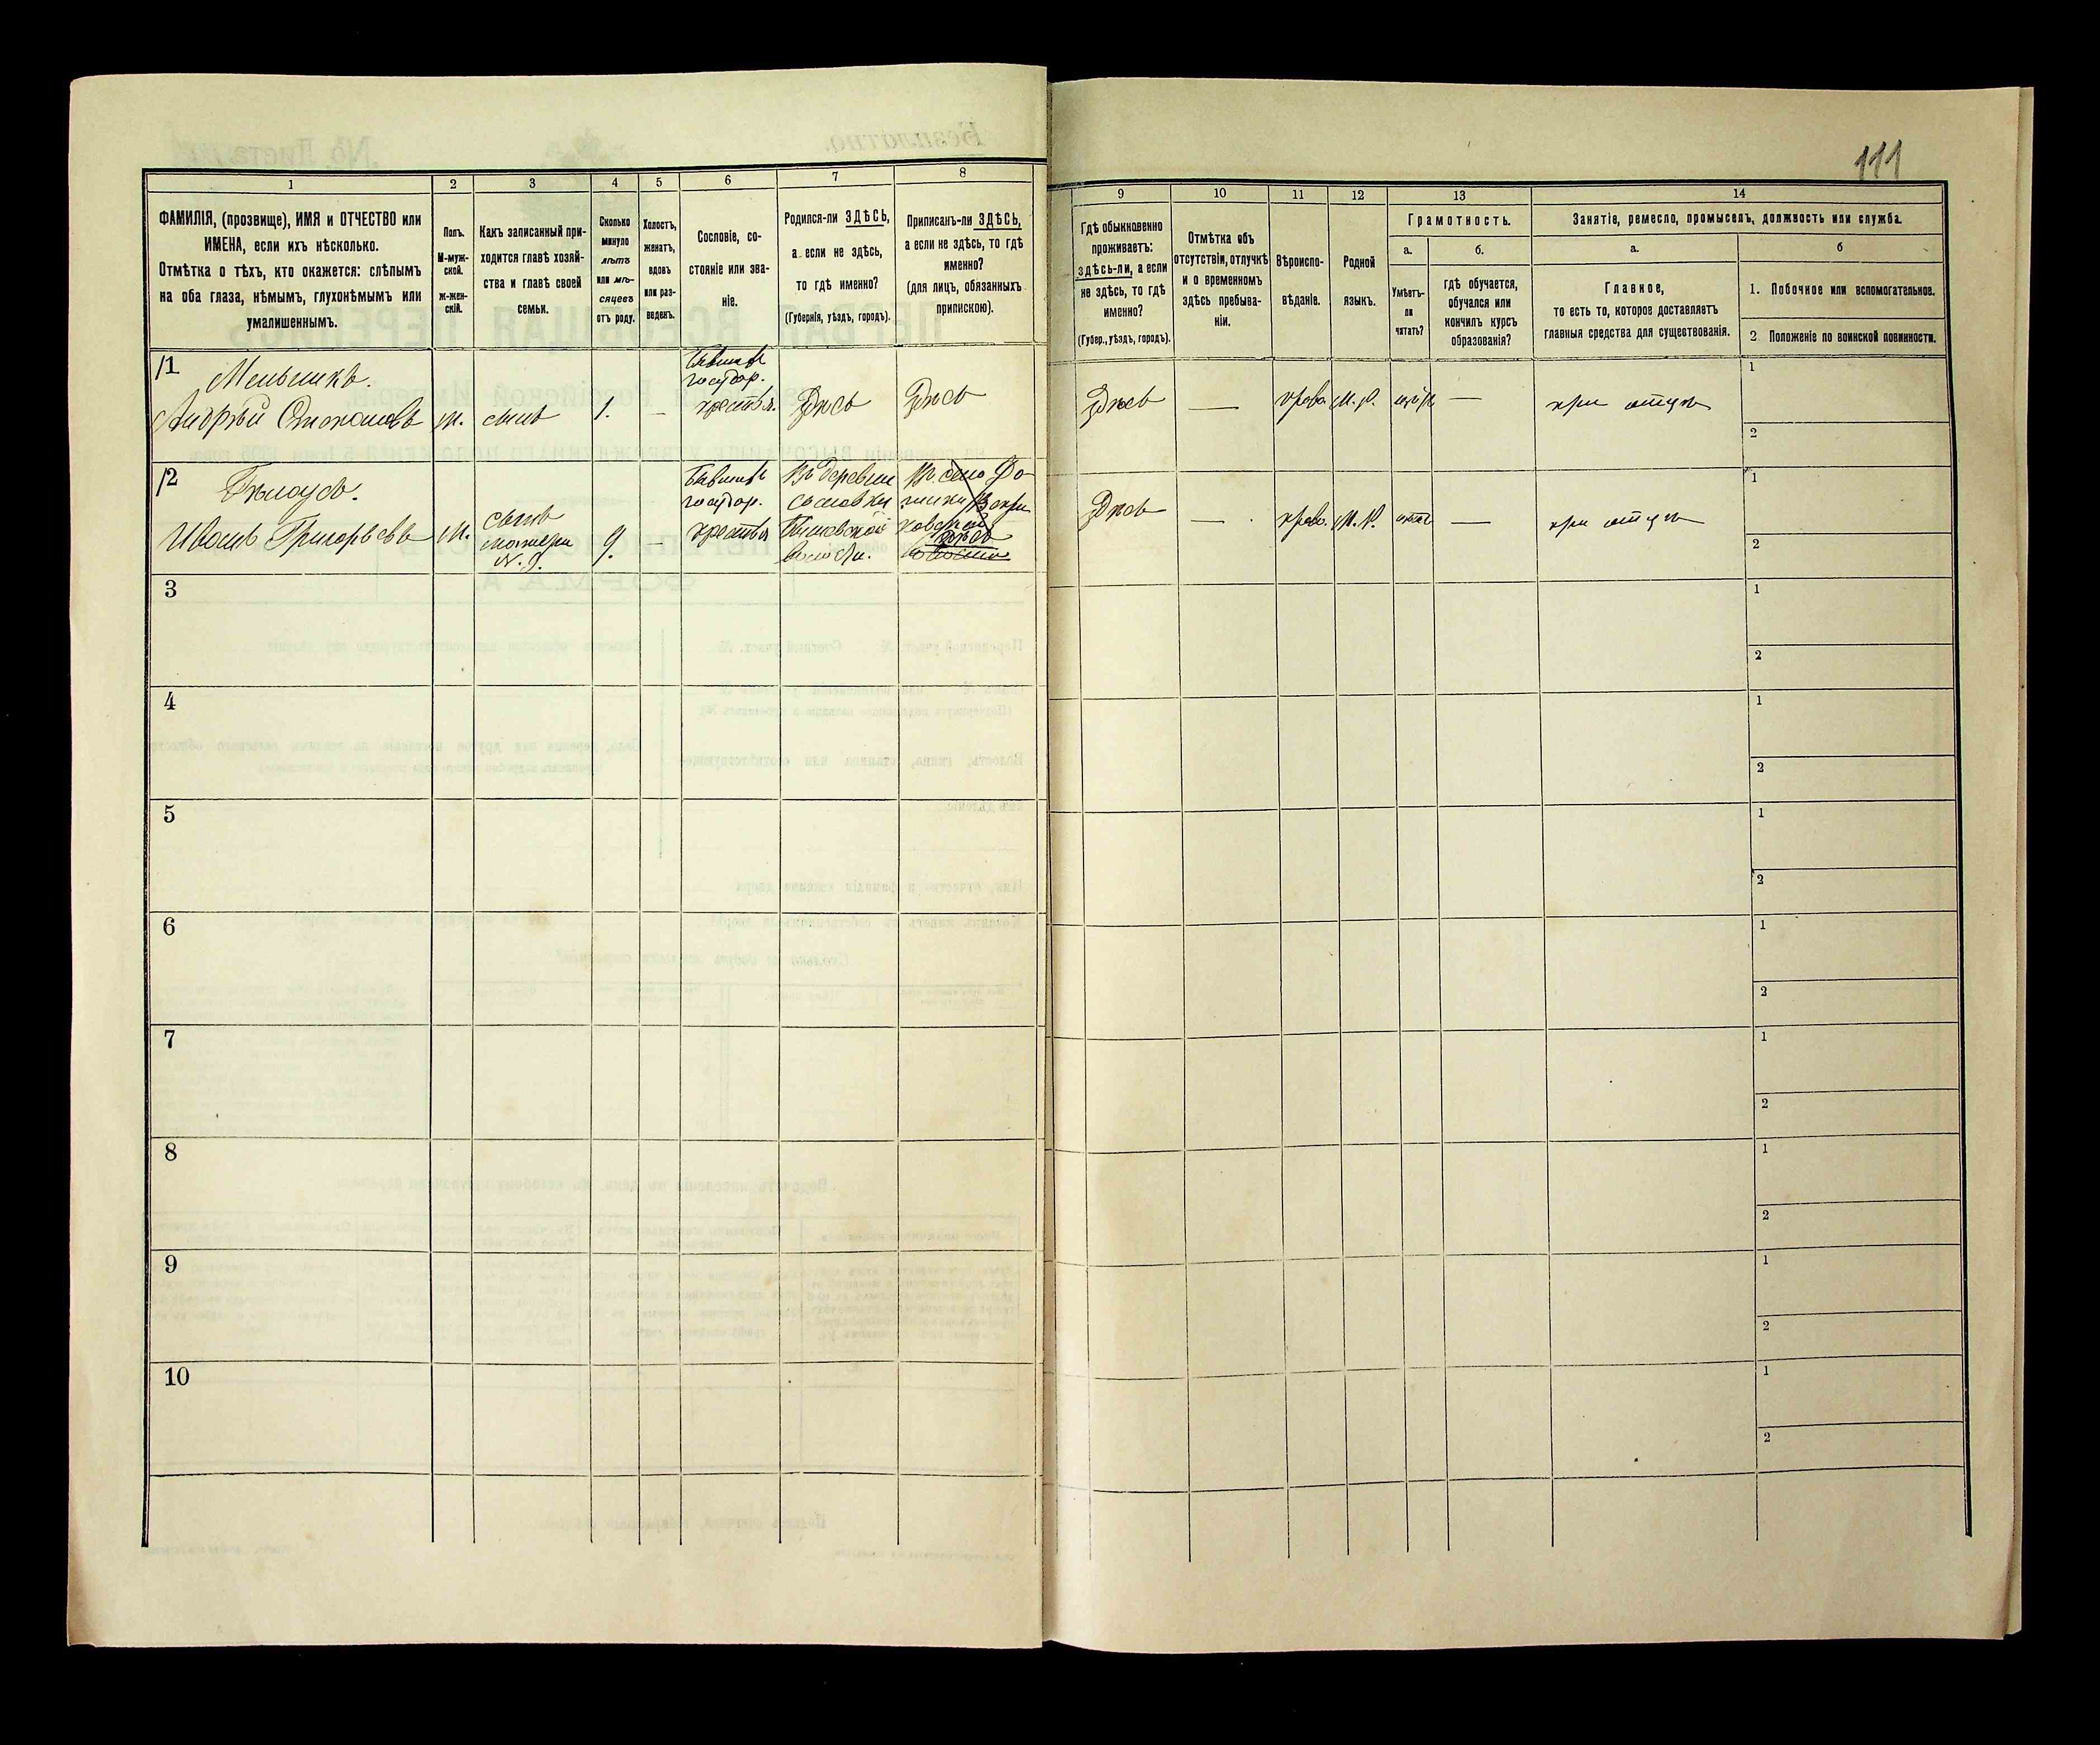 111
1
2
3
4
5
6
7
8
9
10
11
12
13
14
ФАМИЛІЯ, (прозвище), ИМЯ и ОТЧЕСТВО или
ИМЕНА, если ихъ нѣсколько.
Отмѣтка о тѣхъ, кто окажется: слѣпымъ
на оба глаза, нѣмымъ, глухонѣмымъ или
умалишеннымъ.
Полъ.
М-муж-
ской.
ж-жен-
скій.
Какъ записанный при-
ходится главѣ хозяй-
ства и главѣ своей
семьи.
Сколько
минуло
лѣтъ
или мѣ-
сяцевъ
отъ роду.
Холостъ,
женатъ,
вдовъ
или раз-
веденъ.
Сословіе, со-
стояніе или зва-
ніе.
Родился-ли ЗДѢСЬ,
а если не здѣсь,
то гдѣ именно?
(Губернія, уѣздъ, городъ).
Приписанъ-ли ЗДѢСЬ,
а если не здѣсь, то гдѣ
именно?
(для лицъ, обязанныхъ
припискою).
Гдѣ обыкновенно
проживаетъ:
здѣсь-ли, а если
не здѣсь, то гдѣ
именно?
(Губер., уѣздъ, городъ).
Отмѣтка объ
отсутствіи, отлучкѣ
и о временномъ
здѣсь пребыва-
ніи.
Вѣроиспо-
вѣданіе.
Родной
языкъ.
Грамотность.
а.
Умѣетъ-
ли
читать?
б.
гдѣ обучается,
обучался или
кончилъ курсъ
образованія?
Занятіе, ремесло, промыселъ, должность или служба.
а.
Главное,
то есть то, которое доставляетъ
главныя средства для существованія.
б
1. Побочное или вспомогательное.
2 Положеніе по воинской повинности.
11
Мельникъ.
Андрѣй Степановъ
м.
сынъ
1.
—
Бывших
госудор.
крестья.
Здѣсь
Здѣсь
Здѣсь
—
право.
М. р.
—
при отцѣ
1
2
12
Бѣлоусъ.
Иванъ Григорьевъ
М.
сынъ
матери
9.
—
Бывших
госудор.
крестья
Въ деревни
волости.
Въ село
здѣсь
Здѣсь
—
право.
М. Р.
—
при отцѣ
1
2
3
1
2
4
1
2
5
1
2
6
1
2
7
1
2
8
1
2
9
1
2
10
1
2